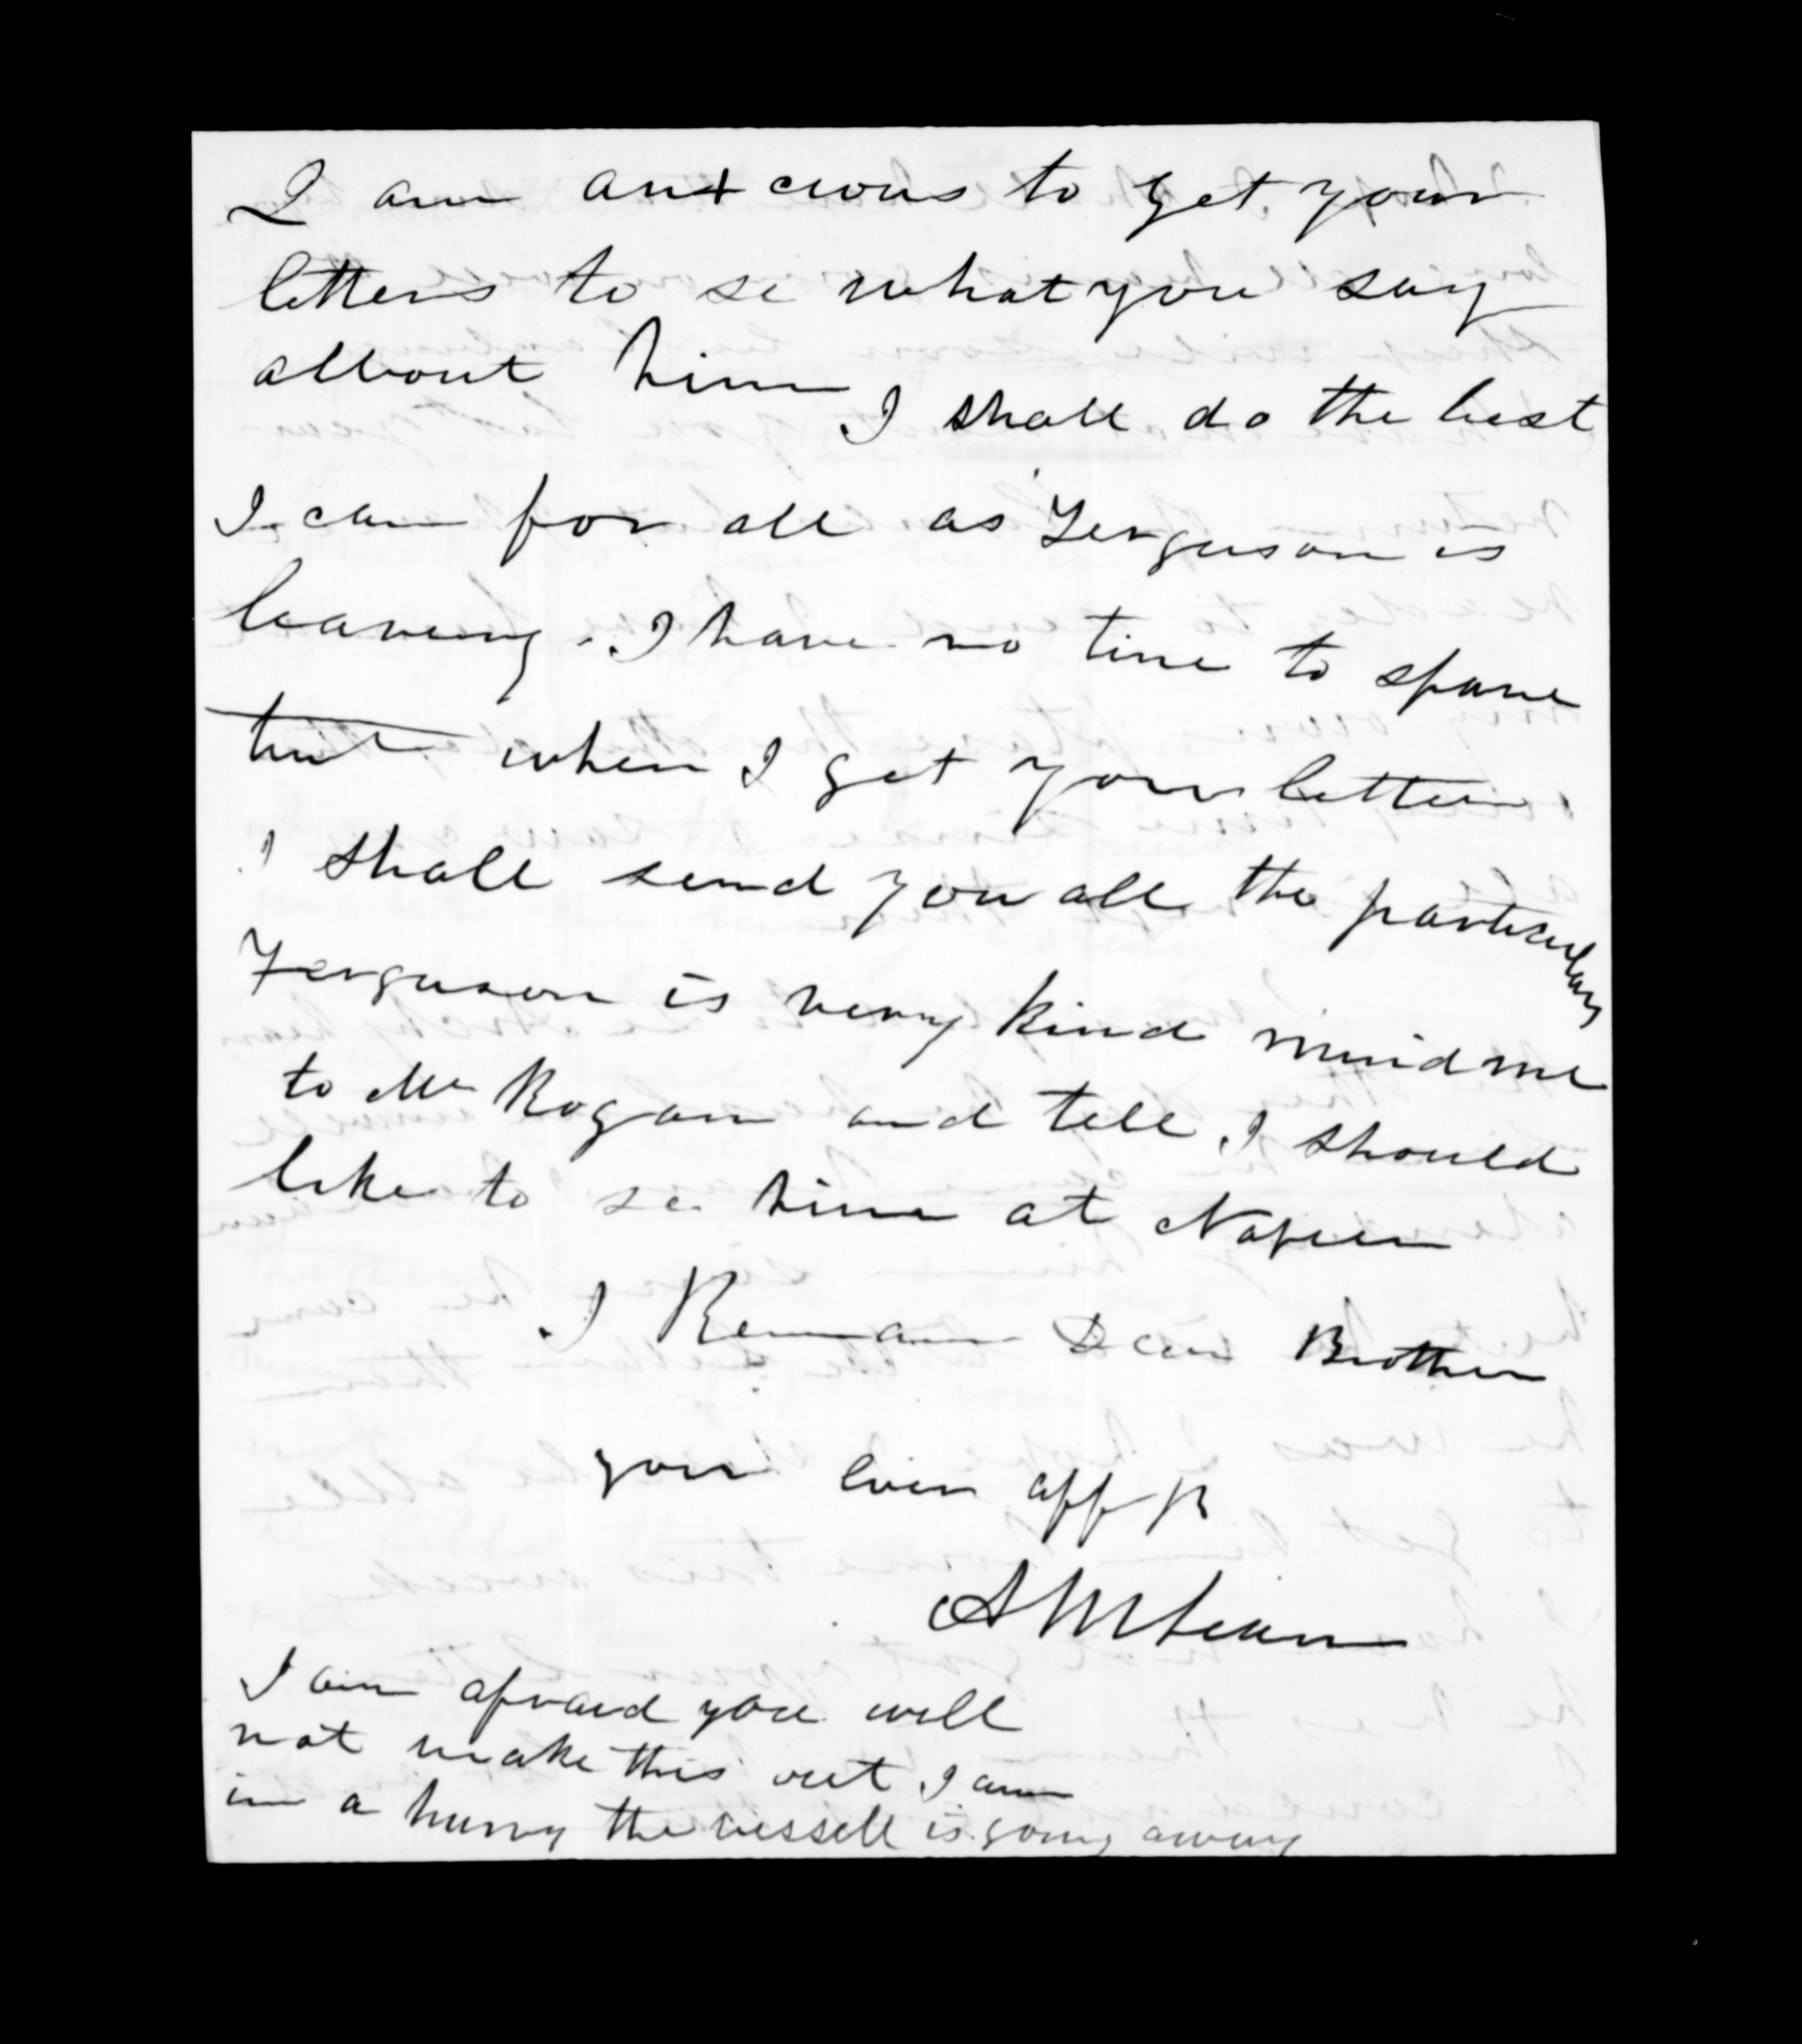 I am anxcious to get your
letters to se what you say
about him I shall do the best
I can for all as Ferguson is
leaveing. I have no time to spare
but when I get your letters
I shall send you all the particulars
Ferguson is very kind mind me
to Mr Rogan and tell I should
like to se him at Napier
I Remain Dear Brother
your ever aff B
A McLean
I am afraid you will
not make this out I am
in a hurry the vessell is going away